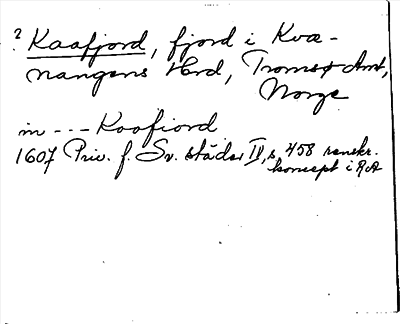 ? Kaafjord, fjord i Kvæ-
nangens Hrd, Tromsø Amt,
Norge
in --- Kaafiord
1607 Priv. f. Sv. städer IV, s. 458 renskr.
koncept i RA